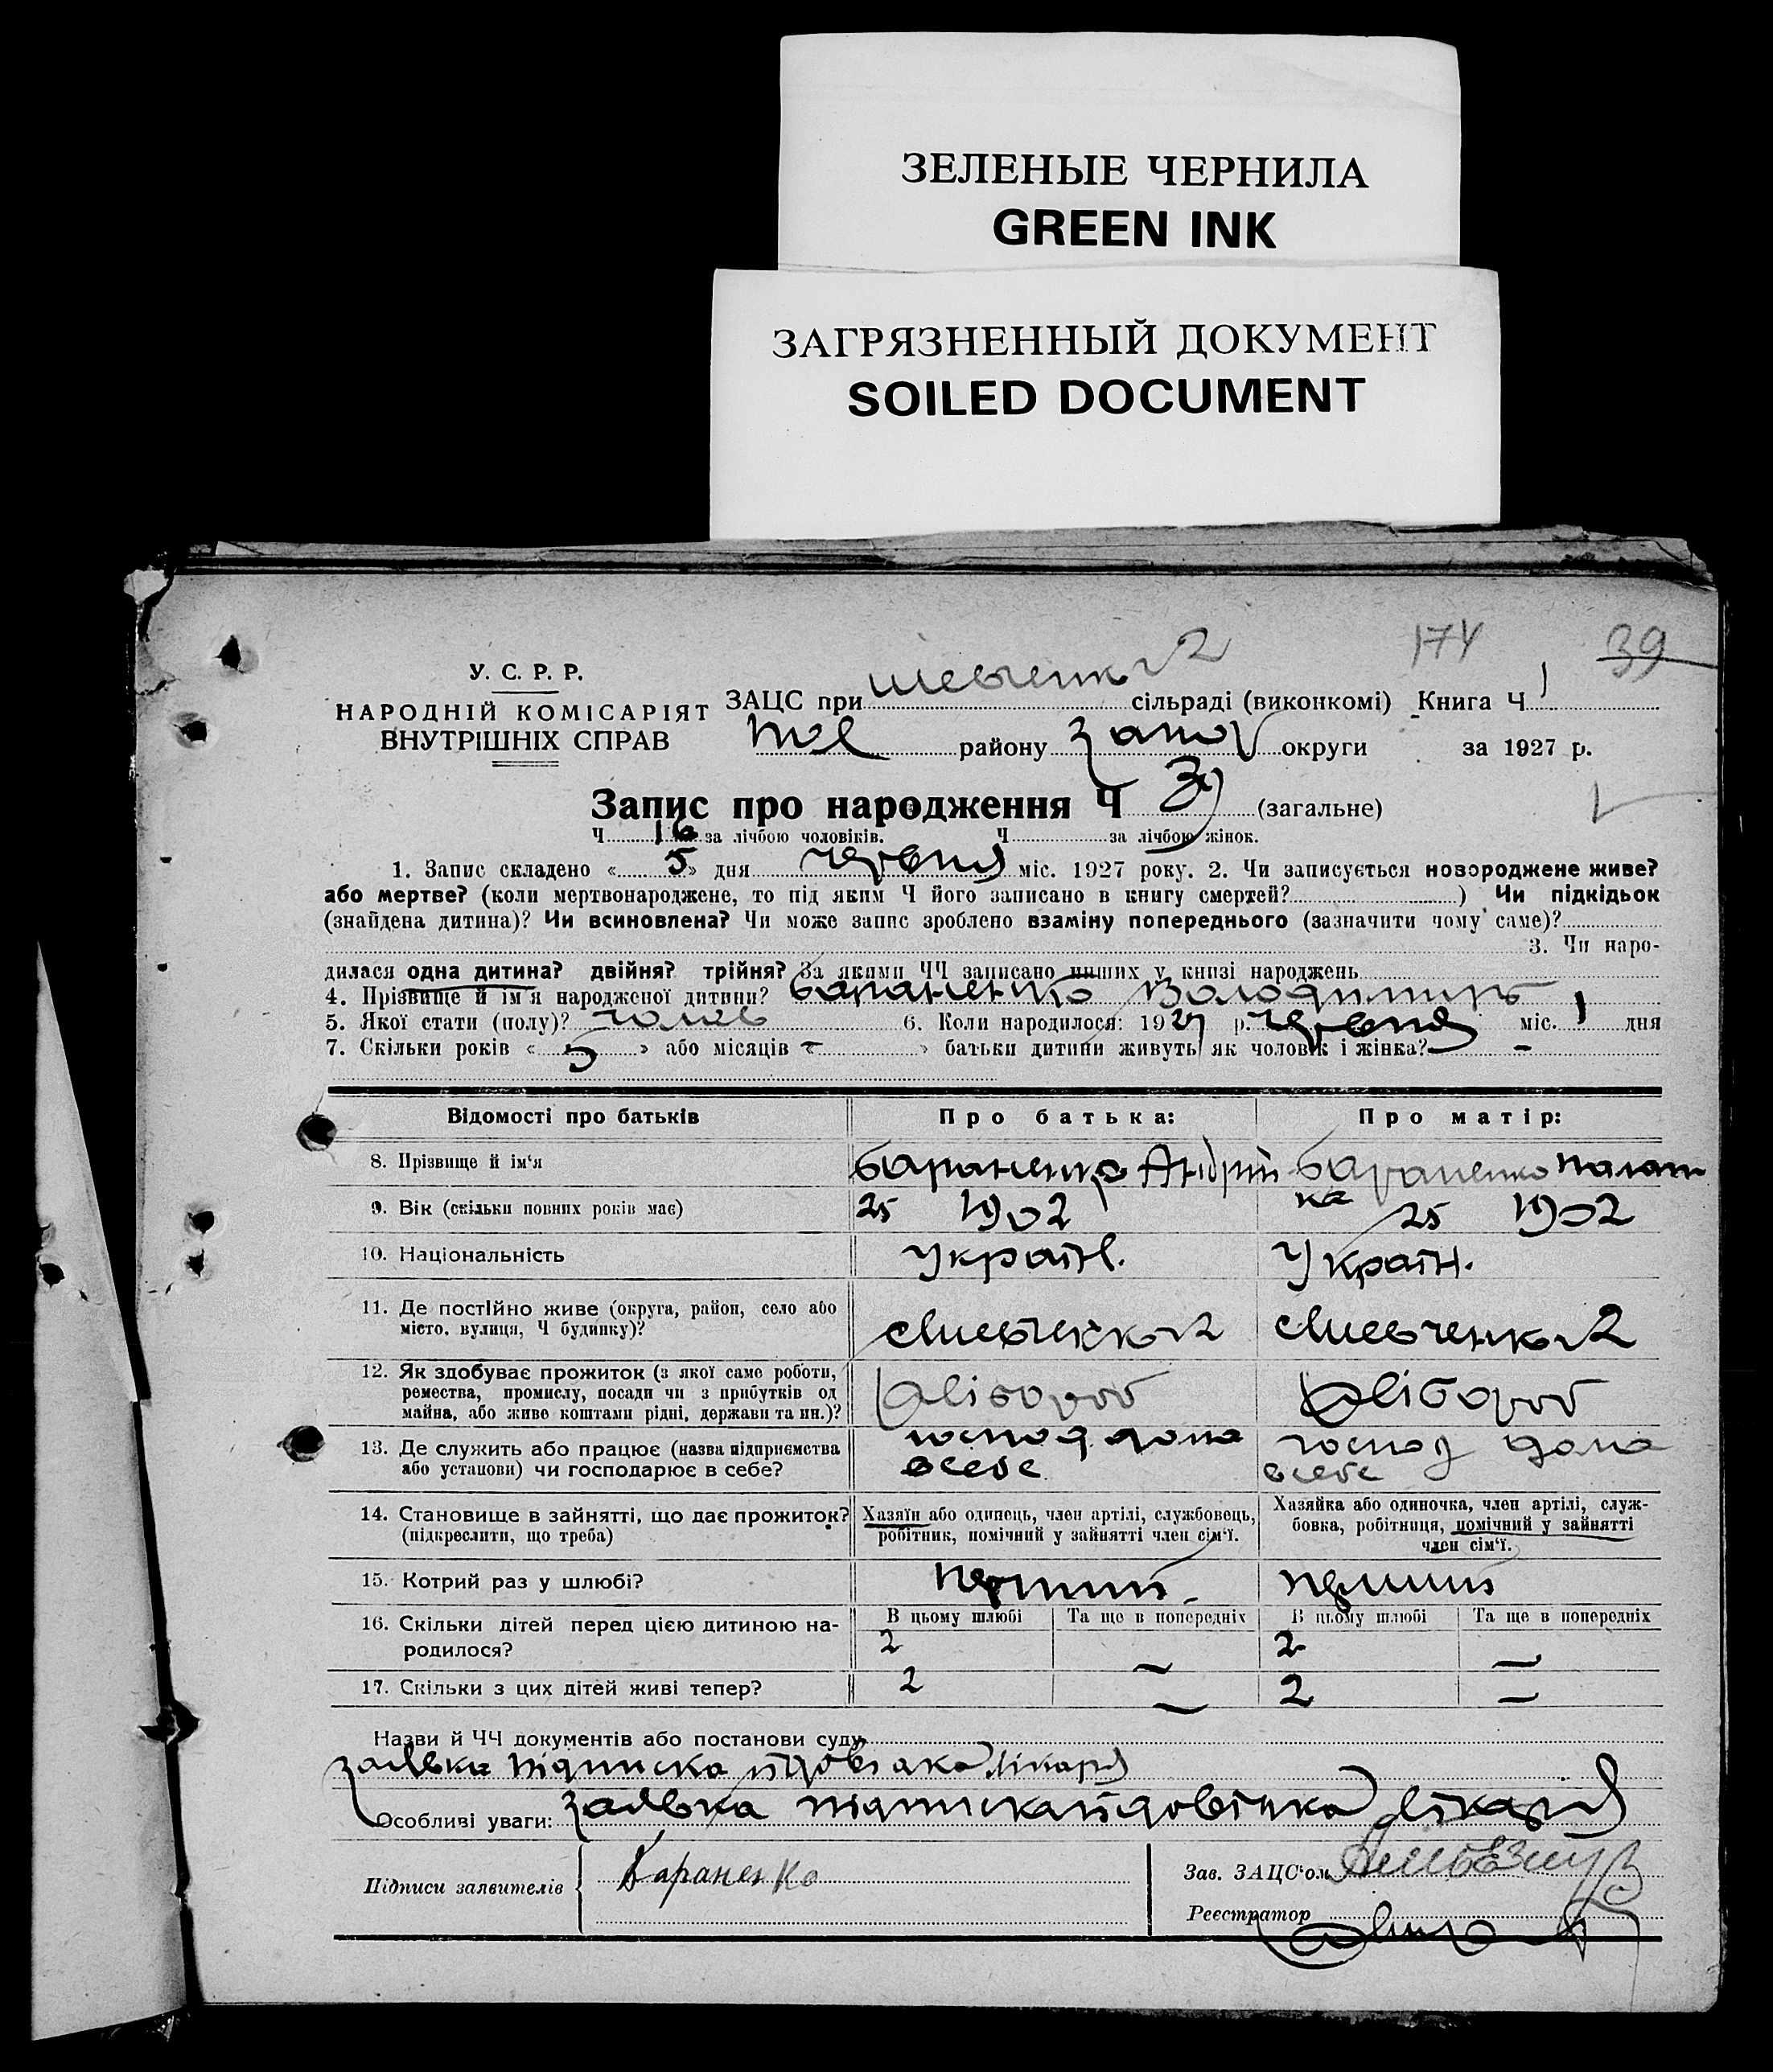 ЗЕЛЕНЫЕ ЧЕРНИЛА
GREEN INK
ЗАГРЯЗНЕННЫЙ ДОКУМЕНТ
SOILED DOCUMENT
174 39
У. С. Р. Р.
НАРОДНІЙ КОМІСАРІЯТ
ВНУТРІШНІХ СПРАВ
ЗАЦС при сільраді (виконкомі) Книга Ч 1
району округи за 1927 р.
Запис про народження Ч 39 (загальне)
Ч 16 за лічбою чоловіків. Ч за лічбою жінок.
1. Запис складено « 5 » дня червня міс. 1927 року. 2. Чи записується новороджене живе?
або мертве? (коли мертвонароджене, то під яким Ч його записано в книгу смертей? ) Чи підкідьок
(знайдена дитина)? Чи всиновлена? Чи може запис зроблено взаміну попереднього (зазначити чому саме)?
3. Чи наро-
дилася одна дитина? двійня? трійня? За якими ЧЧ записано инших у книзі народжень
4. Прізвище й ім'я народженої дитини? Бараненко Володимир
5. Якої стати (полу)? чолов 6. Коли народилося: 1927 р. червня міс. 1 дня
7. Скільки років « 5 » або місяців « - » батьки дитини живуть як чоловік і жінка? -
Відомості про батьків Про батька: Про матір:
8. Прізвище й ім'я Бараненко Андрій Бараненко Палаж
ка
9. Вік (скільки повних років має) 25 1902 25 1902
10. Національність Україн. Україн.
11. Де постійно живе (округа, район, село або
місто, вулиця, Ч будинку)?
12. Як здобуває прожиток (з якої саме роботи,
ремества, промислу, посади чи з прибутків од
майна, або живе коштами рідні, держави та ин.)?
хлібороб хлібороб
13. Де служить або працює (назва підприємства
або установи) чи господарює в себе?
господ дома господ дома
в себе в себе
14. Становище в зайнятті, що дає прожиток?
(підкреслити, що треба)
Хазяїн або одинець, член артілі, службовець,
робітник, помічний у зайнятті член сім'ї.
Хазяйка або одиночка, член артілі, служ-
бовка, робітниця, помічний у зайнятті
член сім'ї.
15. Котрий раз у шлюбі? перший перший
16. Скільки дітей перед цією дитиною на-
родилося?
В цьому шлюбі Та ще в попередніх В цьому шлюбі Та ще в попередніх
2 — 2 —
17. Скільки з цих дітей живі тепер? 2 — 2 —
Назви й ЧЧ документів або постанови суду
заявка підписка й довідка лікаря
Особливі уваги: заявка підписка й довідка лікаря
Підписи заявителів Бараненко
Зав. ЗАЦС'ом
Реєстратор